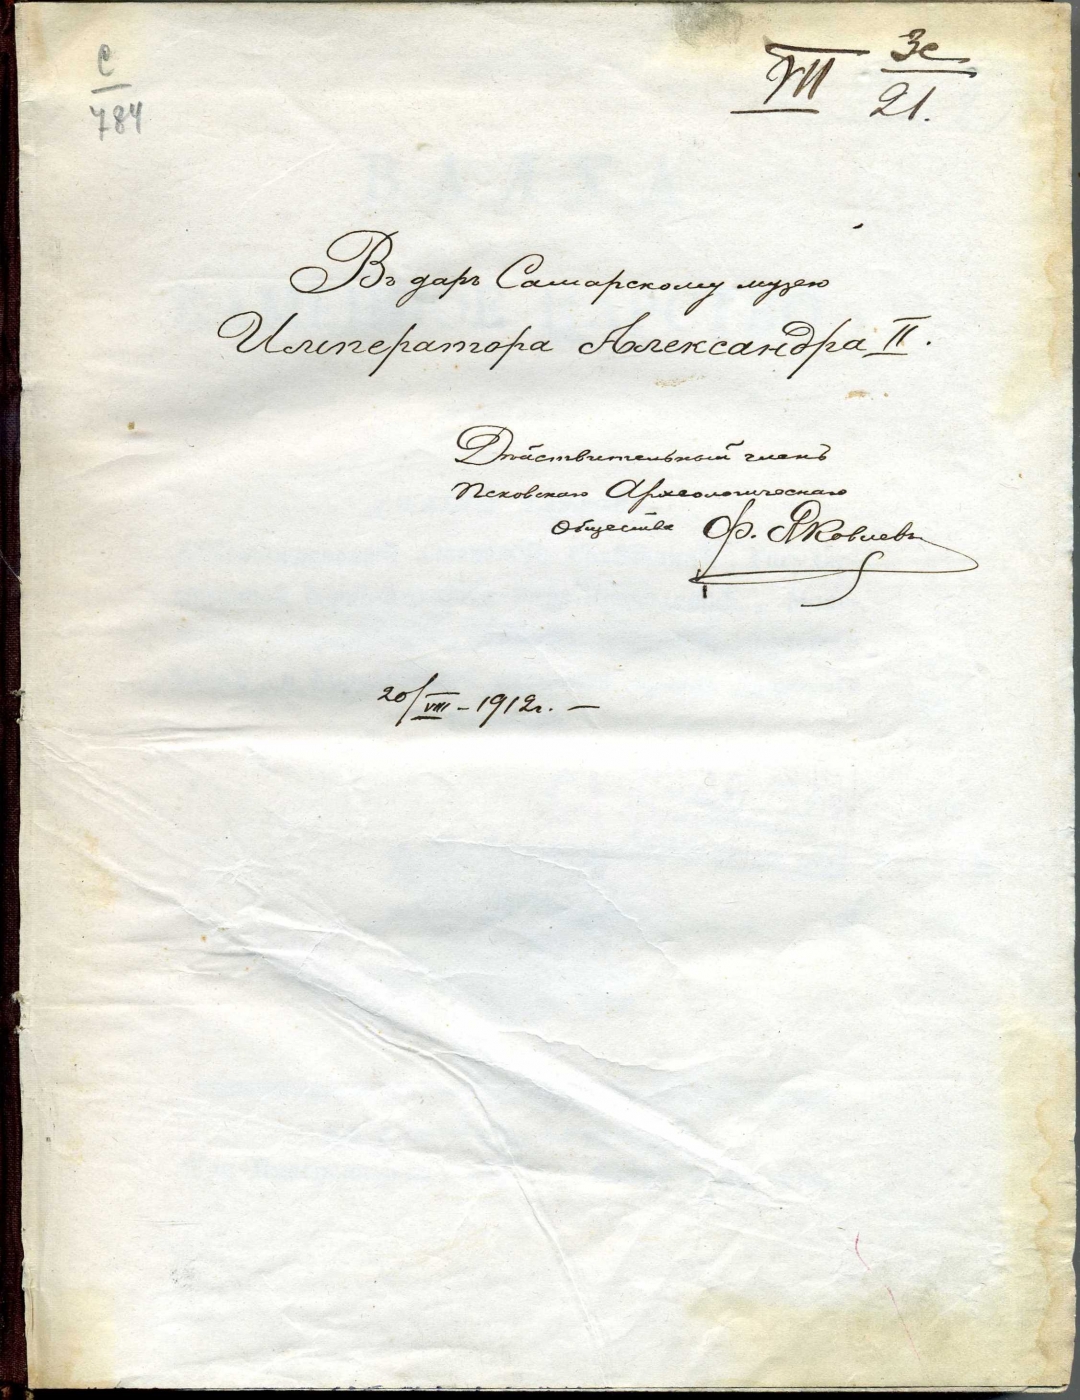 С
784
VII 3с
21.
Въ даръ Самарскому музею
Императора Александра II.
Дѣйствительный членъ
Псковскаго Археологическаго
Общества Ф. Яковлевъ
20/VIII – 1912г. –